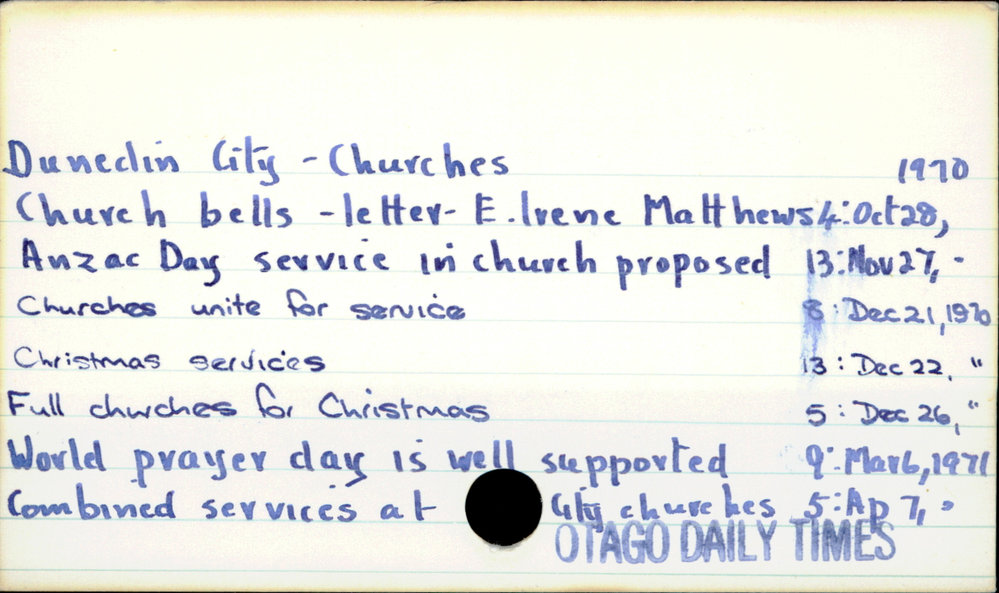 Dunedin City - Churches 1970
Church bells - letter - E. Irene Matthews 4: Oct 28,
Anzac Day service in church proposed 13: Nov 27, "
Churches unite for service 8: Dec 21, 1970
Christmas services 13: Dec 22, "
Full churches for Christmas 5: Dec 26, "
World prayer day is well supported 9: Mar 6, 1971
Combined services at City churches 5: Ap 7, "
OTAGO DAILY TIMES